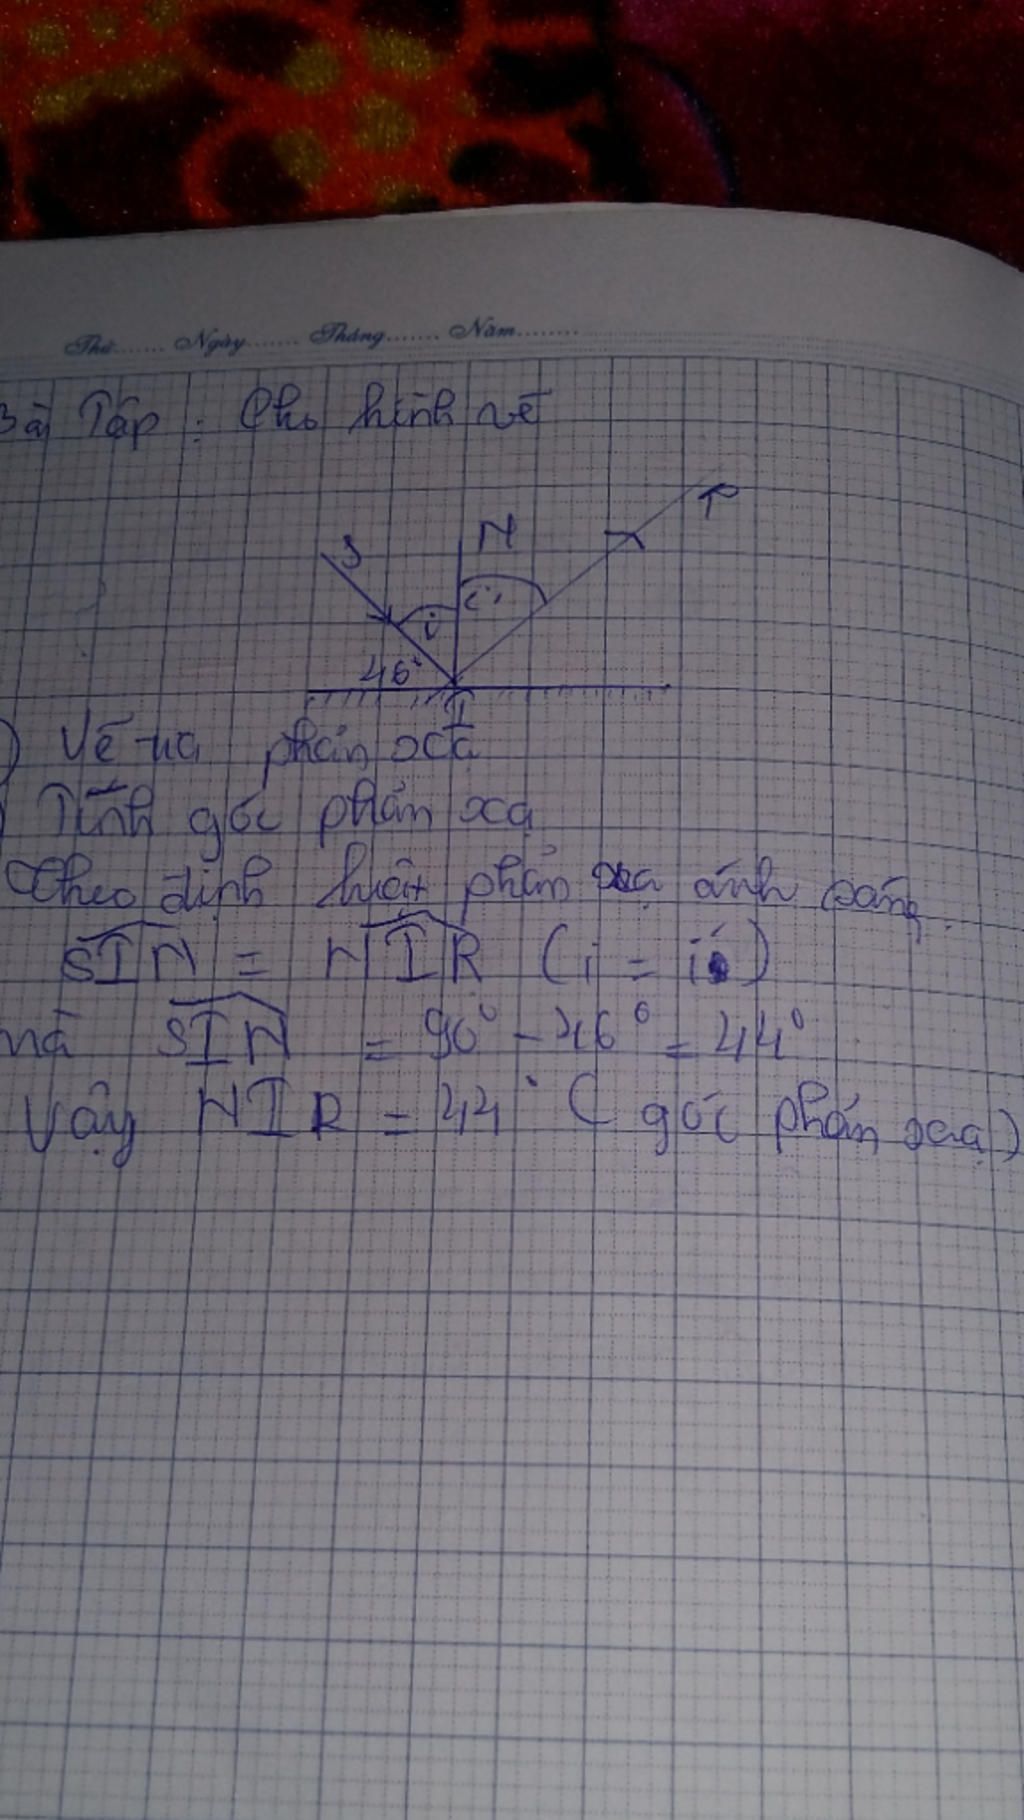 Thứ....... Ngày....... Tháng....... Năm.........
Bài Tập : Cho hình vẽ
S N R
i i'
46°
I
) Vẽ tia phản xạ
) Tính góc phản xạ
Theo định luật phản xạ ánh sáng
SIN = NIR (i = i')
mà SIN = 90° - 46° = 44°
Vậy NIR = 44° ( góc phản xạ )